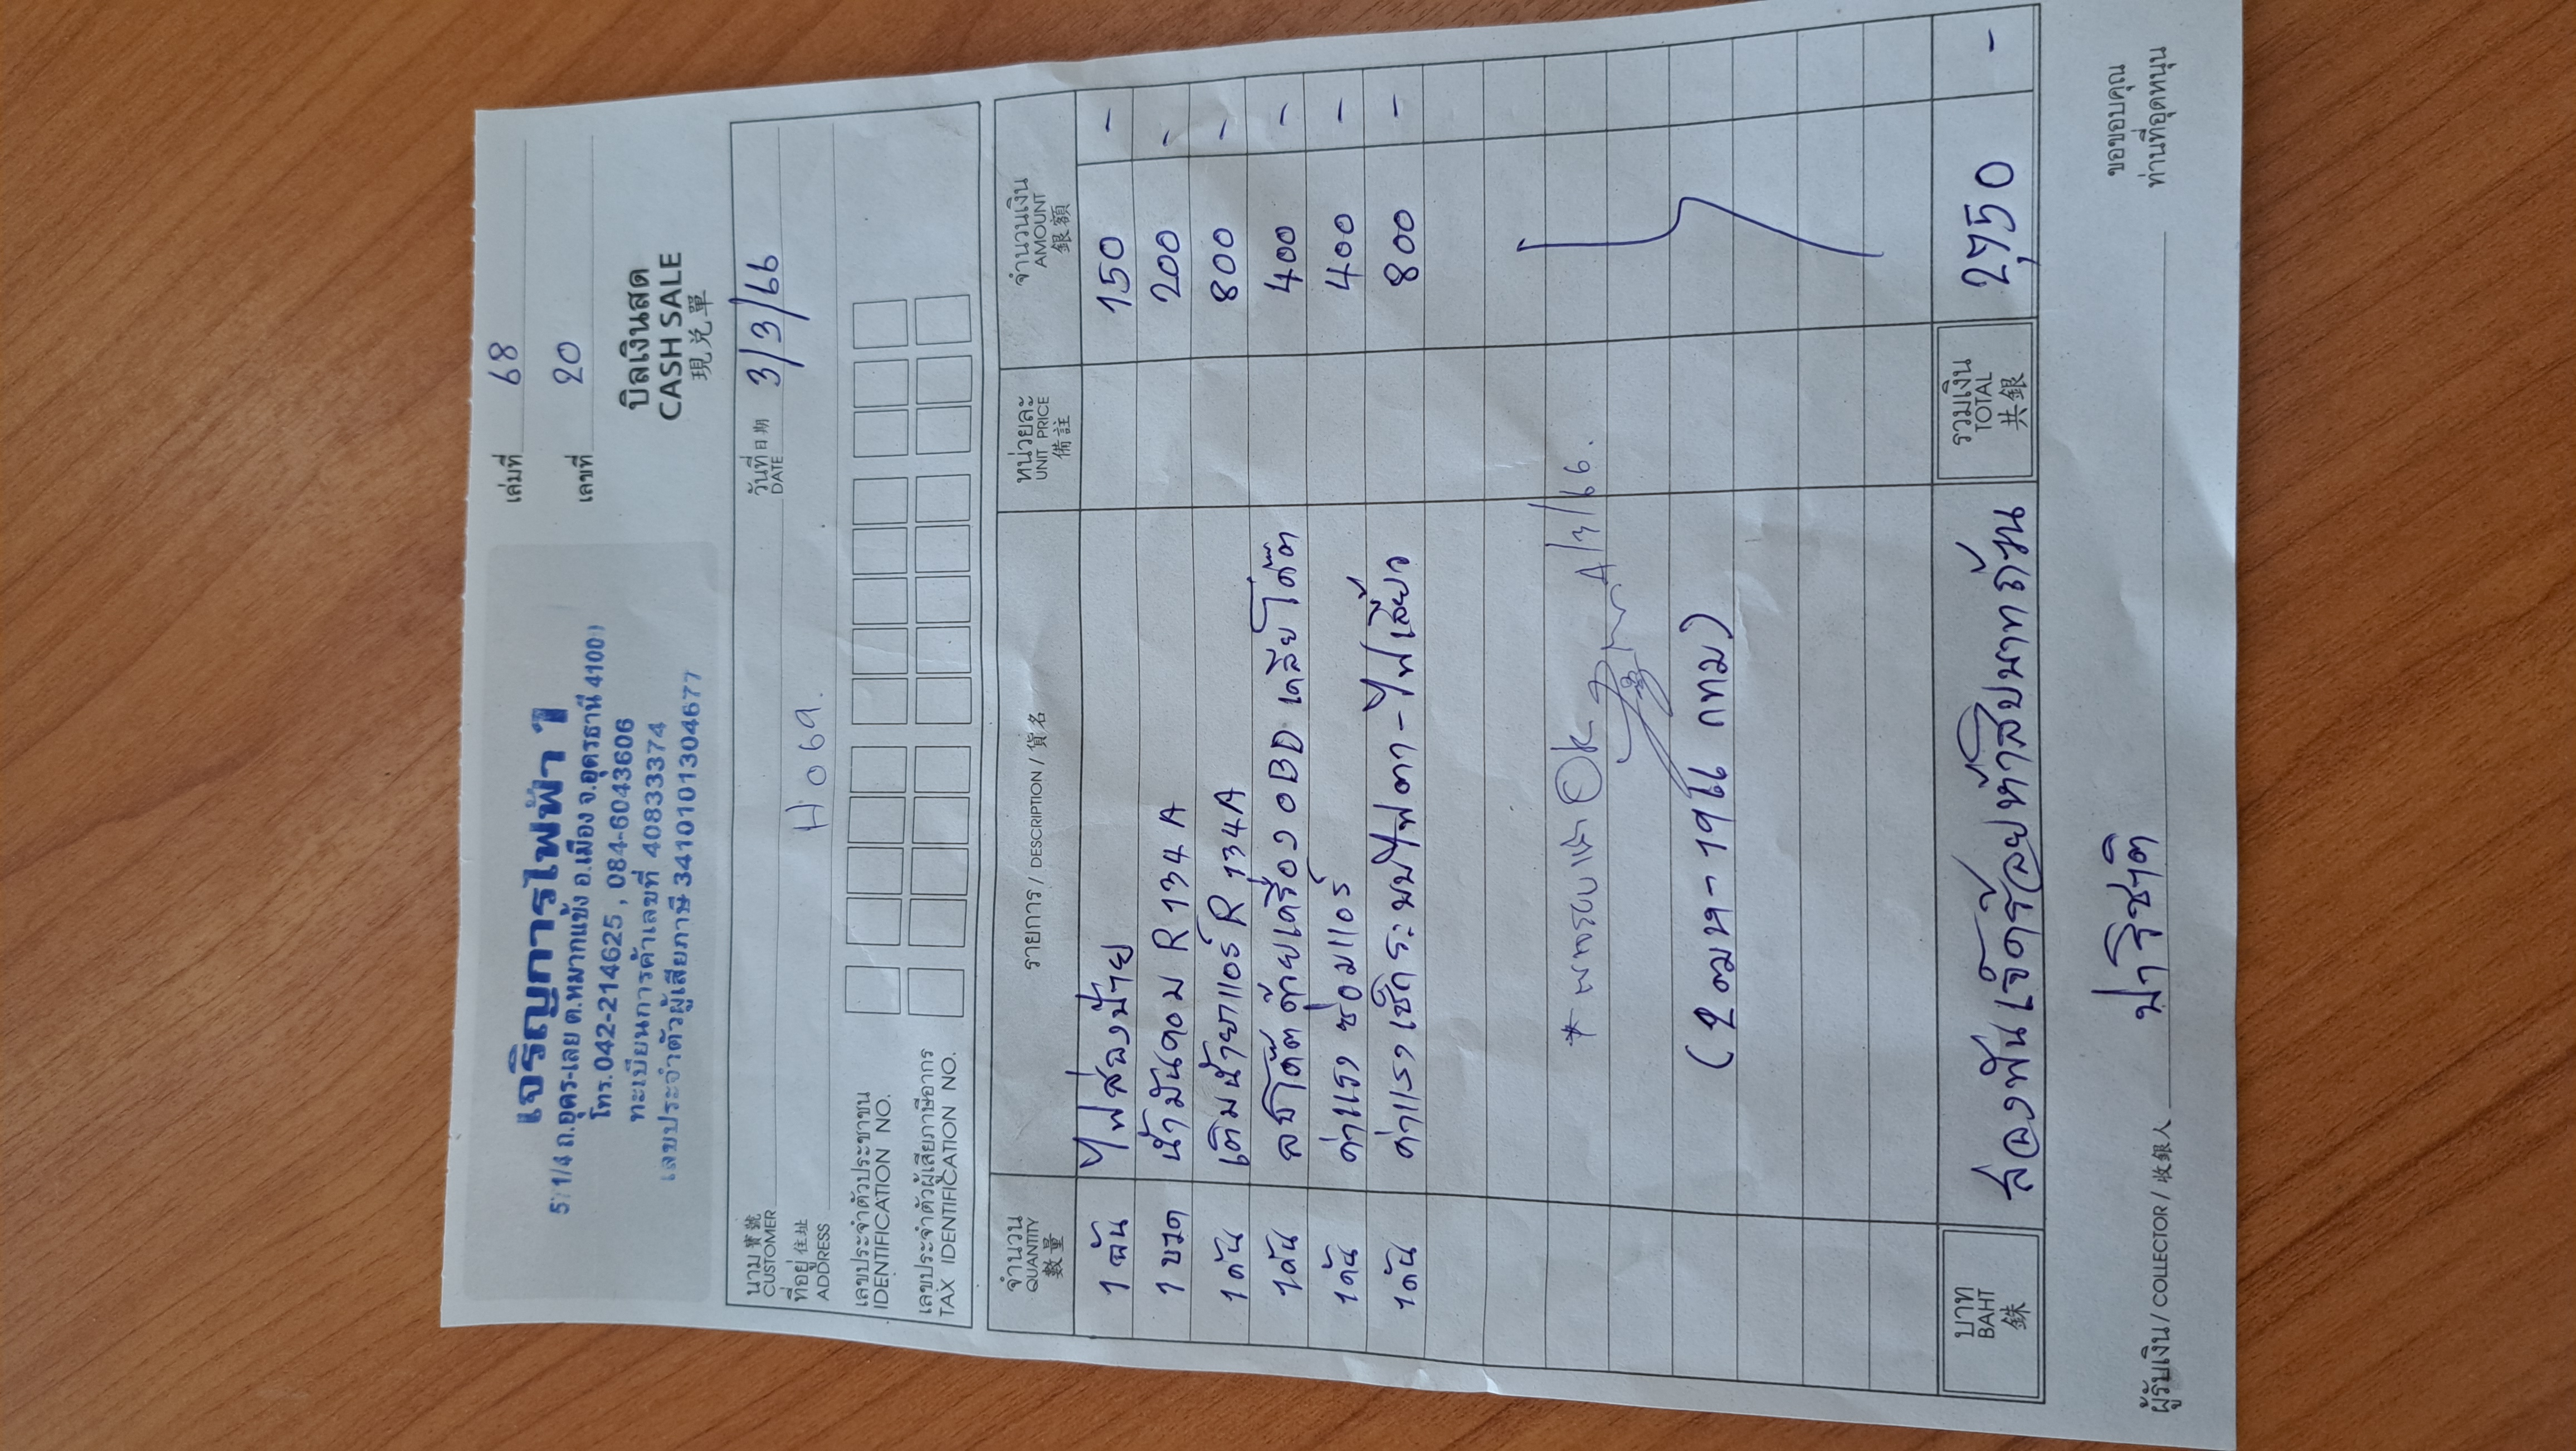 เจริญการไฟฟ้า 1
5 1/4 ถ.อุดร-เลย ต.หมากแข้ง อ.เมือง จ.อุดรธานี 41000
โทร.042-214625 , 084-6043606
ทะเบียนการค้าเลขที่ 40833374
เลขประจำตัวผู้เสียภาษี 3410101304677
เล่มที่ 68
เลขที่ 20
บิลเงินสด
CASH SALE
現兑單
นาม 寶號
CUSTOMER
วันที่ 日期 3/3/66
DATE
ที่อยู่ 住址 H069
ADDRESS
เลขประจำตัวประชาชน
IDENTIFICATION NO.
เลขประจำตัวผู้เสียภาษีอากร
TAX IDENTIFICATION NO.
จำนวน QUANTITY 數量 รายการ / DESCRIPTION / 貨名 หน่วยละ UNIT PRICE 備註 จำนวนเงิน AMOUNT 銀額
1 อัน ไฟส่องป้าย 150 -
1 ขวด น้ำมันคอม R134A 200 -
1 คัน เติมน้ำยาแอร์ R134A 800 -
1 คัน ลบโค๊ตด้วยเครื่อง OBD เคลียโค๊ต 400 -
1 คัน ค่าแรง ซ่อมแอร์ 400 -
1 คัน ค่าแรง เช็กระบบไฟตา-ไฟเลี้ยว 800 -
* OK /3/66.
(2ฒห-1911 กทม)
บาท BAHT 銖 สองพันเจ็ดร้อยห้าสิบบาทถ้วน รวมเงิน TOTAL 共銀 2750 -
ผู้รับเงิน / COLLECTOR / 收銀人 ปาริชาติ
ขอขอบคุณ
ท่านที่อุดหนุน